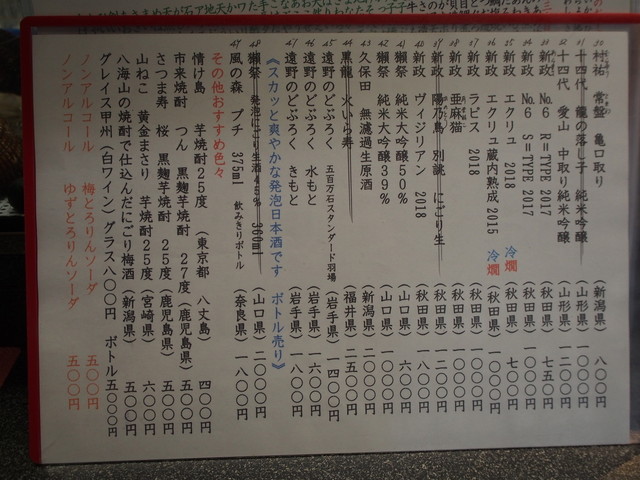 30 村祐 常盤 亀口取り (新潟県) 八〇〇円
31 十四代 龍の落し子 純米吟醸 (山形県) 一〇〇〇円
32 十四代 愛山 中取り純米吟醸 (山形県) 一二〇〇円
33 新政 No.6 R=TYPE 2017 (秋田県) 七五〇円
34 新政 No.6 S=TYPE 2017 (秋田県) 一〇〇〇円
35 新政 エクリュ 2018 冷燗 (秋田県) 七〇〇円
36 新政 エクリュ蔵内熟成 2015 冷燗 (秋田県) 一〇〇〇円
37 新政 ラピス 2018 (秋田県) 一〇〇〇円
38 新政 亜麻猫 (秋田県) 一〇〇〇円
39 新政 陽乃鳥 別誂 にごり生 (秋田県) 一二〇〇円
40 新政 ヴィジリアン 2018 (秋田県) 一八〇〇円
41 獺祭 純米大吟醸50% (山口県) 六〇〇円
42 獺祭 純米大吟醸39% (山口県) 一〇〇〇円
43 久保田 無濾過生原酒 (新潟県) 二〇〇〇円
44 黒龍 火いら寿 (福井県) 二五〇〇円
45 遠野のどぶろく 五百万石スタンダード羽場 (岩手県) 一四〇〇円
46 遠野のどぶろく 水もと (岩手県) 一六〇〇円
47 遠野のどぶろく きもと (岩手県) 一八〇〇円
《スカッと爽やかな発泡日本酒です ボトル売り》
48 獺祭 発泡にごり生酒45% 360ml (山口県) 二〇〇〇円
49 風の森 プチ 375ml 飲みきりボトル (奈良県) 一八〇〇円
その他おすすめ色々
情け島 芋焼酎25度 (東京都 八丈島) 四〇〇円
市来焼酎 つん 黒麹芋焼酎 27度 (鹿児島県) 五〇〇円
さつま寿 桜 黒麹芋焼酎 25度 (鹿児島県) 五〇〇円
山ねこ 黄金まさり 芋焼酎25度 (宮崎県) 六〇〇円
八海山の焼酎で仕込んだにごり梅酒 (新潟県) 五〇〇円
グレイス甲州 (白ワイン) グラス八〇〇円 ボトル五〇〇〇円
ノンアルコール 梅とろりんソーダ 五〇〇円
ノンアルコール ゆずとろりんソーダ 五〇〇円